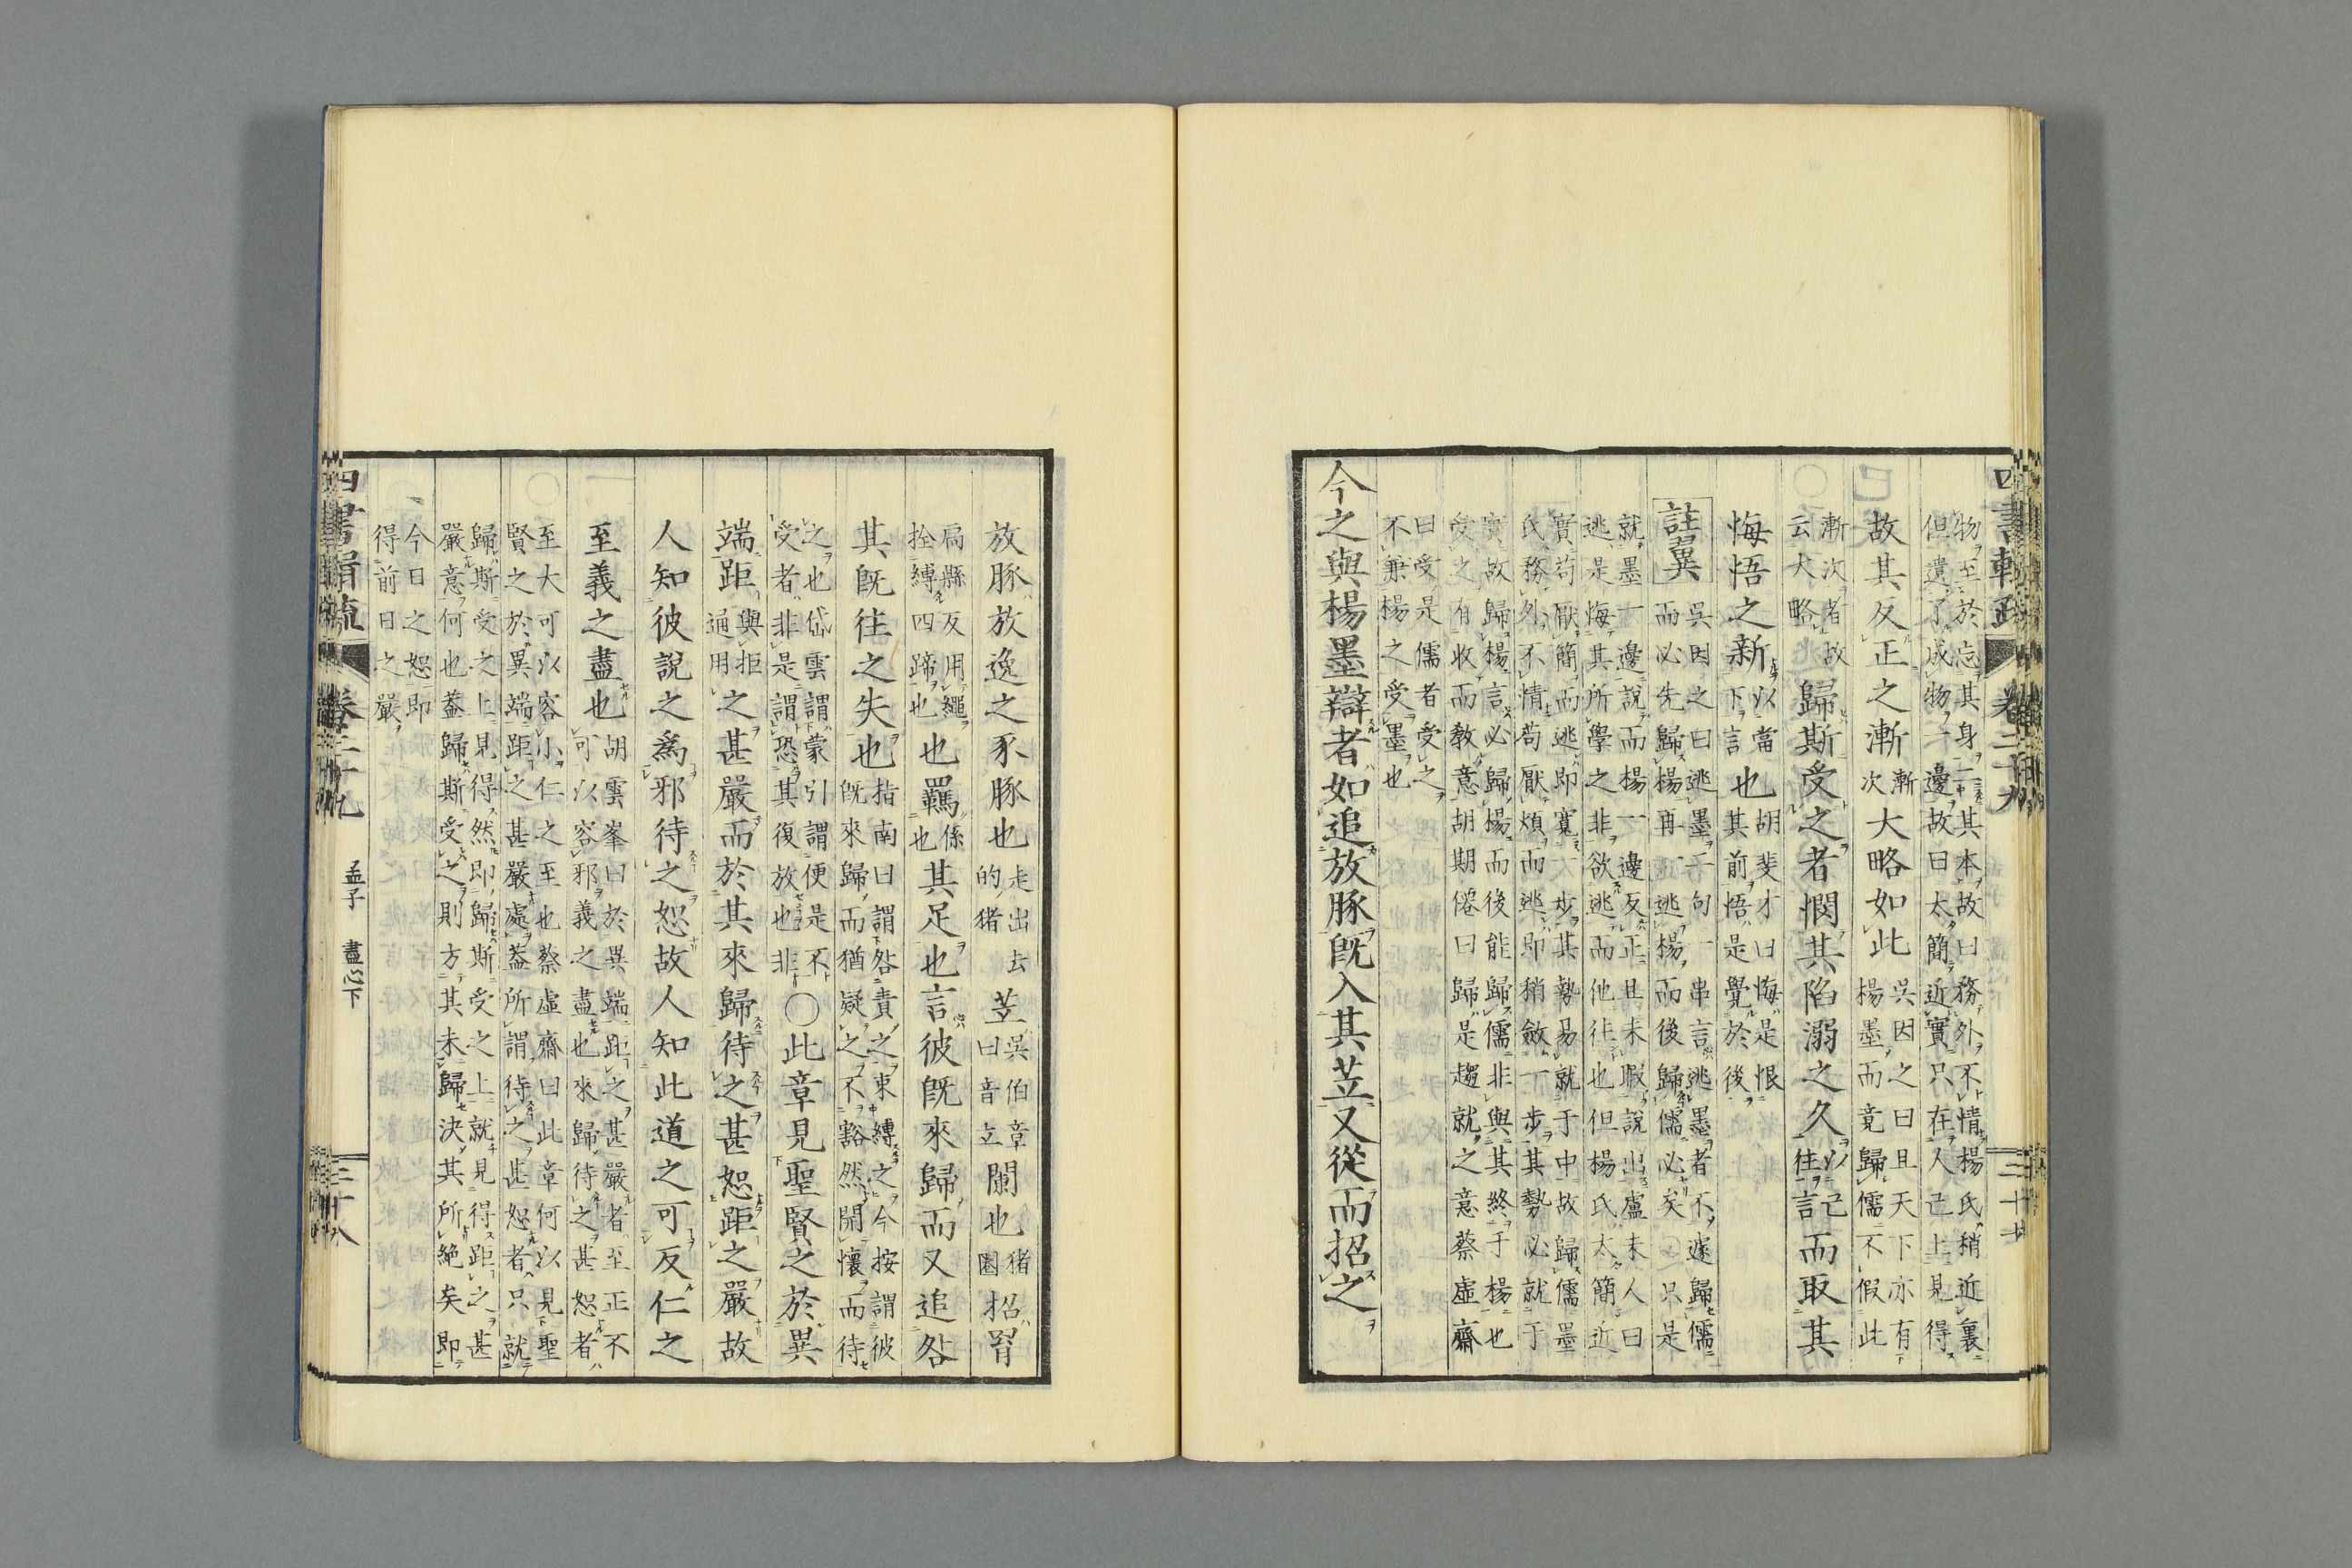 物至於忘其身二其本故曰務外不情楊氏稍近裏
但遺了成物一邊故曰太簡近實只在人己上見得
故其反正之漸漸次大略如此吳因之曰且天下亦有
楊墨而竟歸儒不假此
漸次者故
云大略歸斯受之者憫其陷溺之久以已往言而取其
悔悟之新以當下言也胡斐才曰悔是恨
其前悟是覺於後
註翼吳因之曰逃墨二句一串言逃墨者不遽歸儒
而必先歸楊再逃楊而後歸儒必矣○只是
就墨一邊說而楊一邊反正且未暇說出盧未人曰
逃是悔其所學之非欲逃而他往也但楊氏太簡近
實苟厭簡而逃即寬大步其勢易就于中故歸儒墨
氏務外不情苟厭煩而逃即稍斂一步其勢必就于
實故歸楊言必歸楊而後能歸儒非與其終于楊也
受之有收而教意胡期僊曰歸是趨就之意蔡虛齋
曰受是儒者受之
不兼楊之受墨也
今之與楊墨辯者如追放豚既入其苙又從而招之
放豚放逸之豕豚也走出去
的猪苙吳伯章
曰音立闌也猪
圈招罥
扃縣反用繩
拴縛四蹄也也羈係
也其足也言彼既來歸而又追咎
其既往之失也指南曰謂咎責之束縛之今按謂彼
既來歸而猶疑之不豁然開懷而待
之也岱雲謂蒙引謂便是不
受者非是謂恐其復放也非○此章見聖賢之於異
端距與拒
通用之甚嚴而於其來歸待之甚恕距之嚴故
人知彼說之為邪待之恕故人知此道之可反仁之
至義之盡也胡雲峯曰於異端距之甚嚴者至正不
可以容邪義之盡也來歸待之甚恕者
至大可以容小仁之至也蔡虛齋曰此章何以見聖
賢之於異端距之甚嚴處蓋所謂待之甚恕者只就
歸斯受之上見得然即歸斯受之上就見得距之甚
嚴意何也蓋歸斯受之則方其未歸決其所絕矣即
今日之恕即
得前日之嚴
四書輯疏 卷二十九 三十七
四書輯疏 卷二十九 孟子 盡心下 三十八